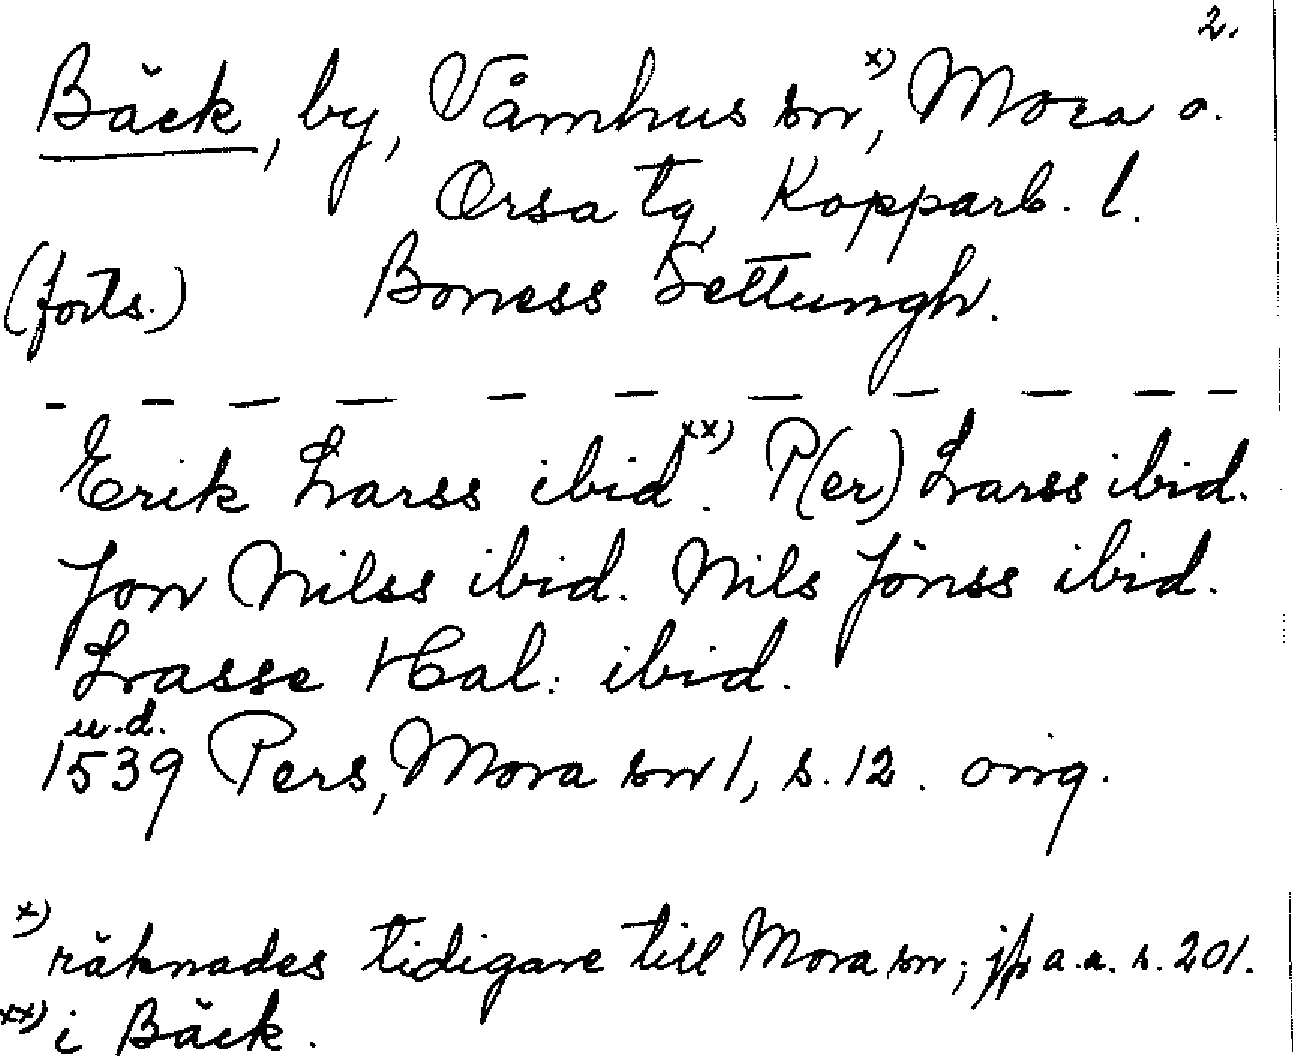 2.
Bäck, by, Våmhus sn,ˣ⁾ Mora o.
Orsa tg, Kopparb. l.
(forts.) Boness Settungh.
– – – – – – – – – – –
Erik Larss ibidˣˣ⁾. P(er) Larss ibid.
Jon Nilss ibid. Nils Jönss ibid.
Lasse Hal: ibid.
u.d.
1539 Pers, Mora sn 1, s. 12. orig.
x) räknades tidigare till Mora sn; jfr a.a. s. 201.
xx) i Bäck.